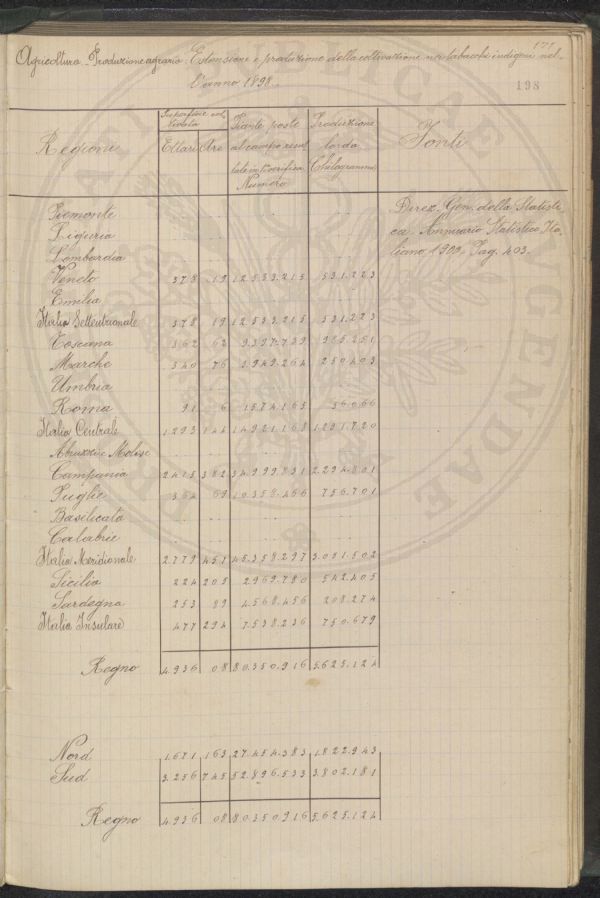 171
Agricoltura - Produzione agrario: Estensione e produzione della coltivazione nei tabacchi indigeni nel-
l'anno 1898.
198
Regioni
Superficie col-
tivata
Ettari Are
Piante poste
al campo risul
tate in 1ª verifica
Numero
Produzione
lorda
Chilogrammi
Fonti
Direz. Gen. della Statisti
ca - Annuario Statistico Ita
liano 1909 - Pag. 403 -
Piemonte
Liguria
Lombardia
Veneto 378 19 12.533.215 531.223
Emilia
Italia Settentrionale 378 19 12.533.215 531.223
Toscana 662 62 9.397.739 985.251
Marche 540 76 3.949.264 250.403
Umbria
Roma 91 6 1.574.165 56.066
Italia Centrale 1293 144 14.921.168 1.291.720
Abruzzi e Molise
Campania 2415 382 34.999.831 2.294.801
Puglie 364 69 10.358.466 756.701
Basilicata
Calabrie
Italia Meridionale 2779 451 45.358.297 3.051.502
Sicilia 224 205 2.969.780 542.405
Sardegna 253 89 4.568.456 208.274
Italia Insulare 477 294 7.538.236 750.679
Regno 4.936 08 80.350.916 5.625.124
Nord 1.671 163 27.454.383 1.822.943
Sud 3.256 745 52.896.533 3.802.181
Regno 4936 08 80350916 5.625.124